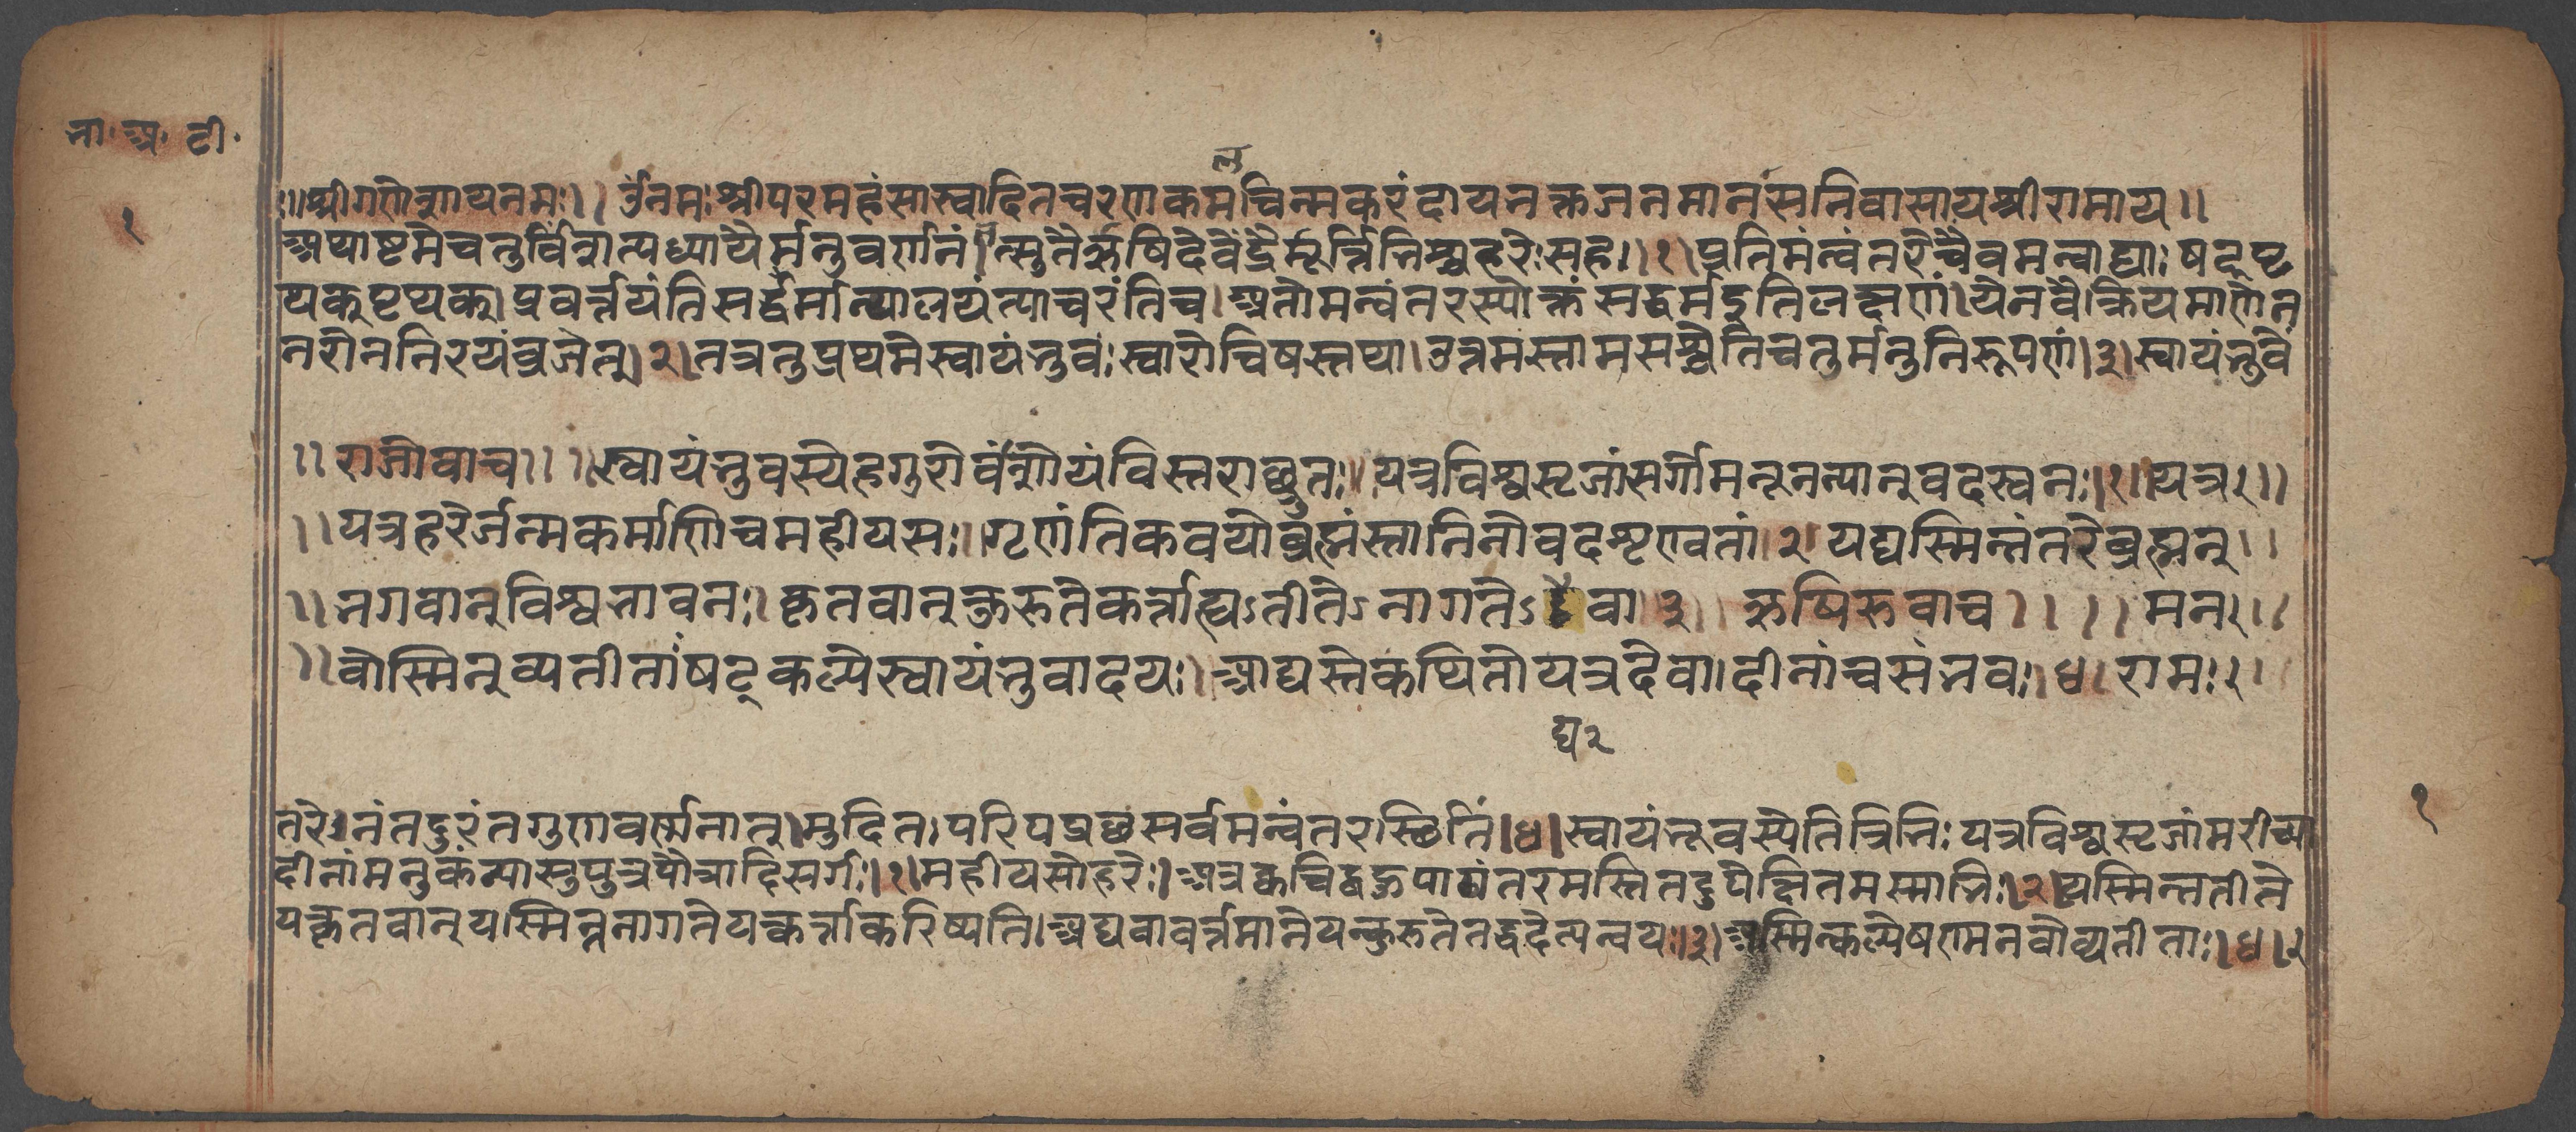 भा॰ अ॰ टी॰
१
ल
॥श्रीगणेशायनमः॥ ॐनमःश्रीपरमहंसास्वादितचरणकमचिन्मकरंदायभक्तजनमानसनिवासायश्रीरामाय॥
अथाष्टमेचतुर्विंशत्यध्यायैर्मनुवर्णनं।तत्सुतैर्ऋषिदेवेंद्रैर्मूर्त्तिभिश्चहरेःसह।१।प्रतिमंन्वंतरेचैवमन्वाद्याःषट्पृ
थक्पृथक्।प्रवर्त्तयंतिसद्धर्मान्पालयंत्याचरंतिच।अतोमन्वंतरस्योक्तंसद्धर्मइतिलक्षणं।येनवैक्रियमाणेन
नरोननिरयंव्रजेत्।२।तत्रतुप्रथमेस्वायंभुवःस्वारोचिषस्तथा।उत्तमस्तामसश्चेतिचतुर्मनुनिरूपणं।३।स्वायंभुवे
॥राजोवाच॥ ॥स्वायंभुवस्येहगुरोवंशोयंविस्तराछ्रुतः।यत्रविश्वसृजांसर्गोमनूनन्यान्वदस्वनः।१।यत्र॰॥
॥यत्रहरेर्जन्मकर्माणिचमहीयसः।गृणंतिकवयोब्रह्मंस्तानिनोवदशृण्वतां।२।यद्यस्मिन्नंतरेब्रह्मन्॥
॥भगवान्विश्वभावनः।कृतवान्कुरुतेकर्त्ताह्यऽतीतेऽनागतेऽवा।३। ऋषिरुवाच॥ ॥मन॰॥
॥वोस्मिन्व्यतीताःषट्कल्पेस्वायंभुवादयः।आद्यस्तेकथितोयत्रदेवा।दीनांचसंभवः।४। राम॰॥
द्य२
तरेऽनंतदुरंतगुणवर्णनात्।मुदितःपरिपप्रछसर्वमन्वंतरस्छितिं।४।स्वायंभूवस्येतित्रिभिः यत्रविश्वसृजांमरीच्या
दीनांमनुकंन्यासुपुत्रपौत्रादिसर्गः।१।महीयसोहरेः।अत्रक्वचिद्बहूपाद्यंतरमस्तितदुपेक्षितमस्माभिः।२।यस्मिन्नतीते
यत्कृतवान्यस्मिन्ननागतेयत्कर्त्ताकरिष्यति।अद्यवावर्त्तमानेयत्कुरुतेतद्वदेत्यन्वयः।३।अस्मिन्कल्पेषण्मनवोव्यतीताः।४।२
१